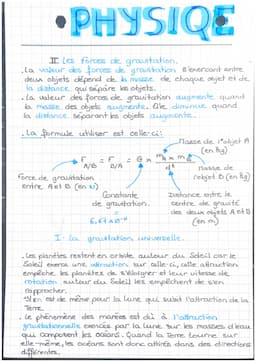 • PHYSIQE
II Les forces de gravitation.
. La valeur des forces de gravitation s'exercent entre
deux objets dépend de la masse de chaque objet et de
la distance qui sépare les objets.
. La valeur des forces de gravitation augmente quand
la masse des objets augmente. Elle diminue quand
la distance séparant les objets augmente.
. La formule utiliser est celle-ci:
Masse de l'objet A
(en kg)
F A/B = F B/A = G × mA × mB / d²
Force de gravitation
entre A et B (en N)
masse de
l'objet B (en kg)
Constante
de gravitation.
=
6,67×10⁻¹¹
Distance entre le
centre de gravité
des deux objets A et B
(en m)
I. la gravitation universelle.
. Les planètes restent en orbite autour du Soleil car le
Soleil exerce une attraction sur celle-ci, cette attraction
empêche les planètes de s'éloigner et leur vitesse de
rotation autour du Soleil les empêchent de s'en
rapprocher.
Il en est de même pour la lune qui subit l'attraction de la
Terre.
. Le phénomène des marées est dû à l'attraction
gravitationnelle exercée par la lune sur les masses d'eau
qui composent les océans. Quand la Terre tourne sur
elle-même, les océans sont donc attirés dans des directions
différentes.